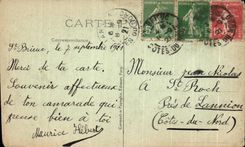 CARTE
Correspondance
St Brieuc, le 7 septembre 1921
Merci de ta carte.
Souvenir affectueux
de ton camarade qui
pense bien à toi
Maurice Hébert
Monsieur Jean Nicolas
A St Roch
Près de Lannion
(Côtes-du-Nord)